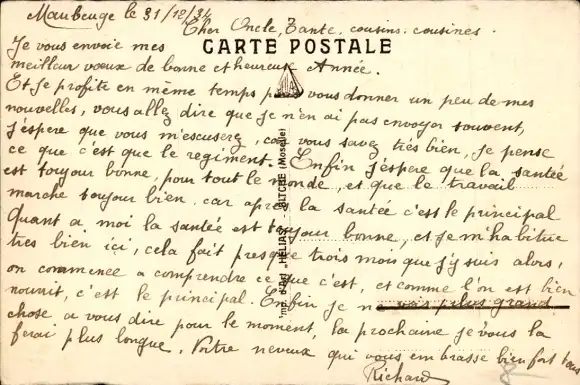 Maubeuge le 31/12/34
Cher Oncle, Tante, cousins. cousines.
Je vous envoie mes
CARTE POSTALE
meilleur vœux de bonne et heureuse Année.
Et Je profite en même temps pour vous donner un peu de mes
nouvelles, vous allez dire que je n'en ai pas envoyer souvent,
J'éspere que vous m'escuserez, car vous savez très bien, je pense
ce que c'est que le regiment. Enfin J'éspere que la santée
est toujour bonne, pour tout le monde, et que le travail
marche toujour bien. car après la santée c'est le principal
Quant a moi la santée est toujour bonne, et je m'habitue
tres bien ici, cela fait presque trois mois que j'y suis alors,
on commence a comprendre ce que c'est, et comme l'on est bien
nourit, c'est le principal. Enfin je ne vois plus grand
chose a vous dire pour le moment, la prochaine je vous la
ferai plus longue. Votre neveux qui vous embrasse bien fort tous
Richard
Imp. d'Art "HELIAS" BITCHE (Moselle)
8